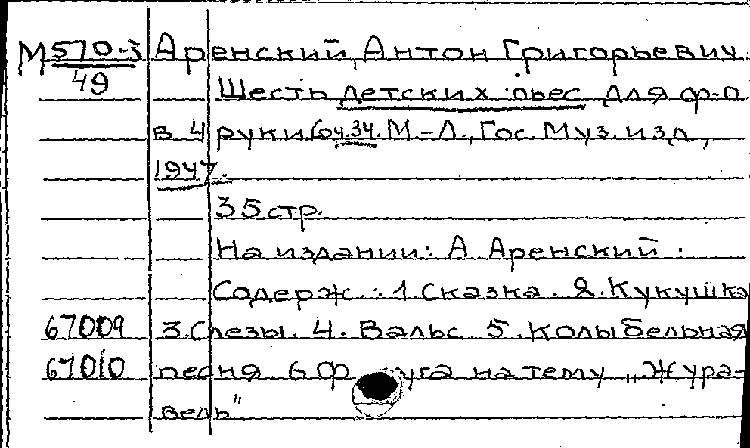 М 570-3 Аренский, Антон Григорьевич.
49
Шесть детских пьес для ф-п
в 4 руки. Соч. 34. М.-Л., Гос. Муз. изд.,
1947.
35 стр.
На издании: А. Аренский.
Содерж.: 1. Сказка. 2. Кукушка
67009 3. Слезы. 4. Вальс 5. Колыбельная
67010 песня 6. Ф уга на тему „Жура-
вель"